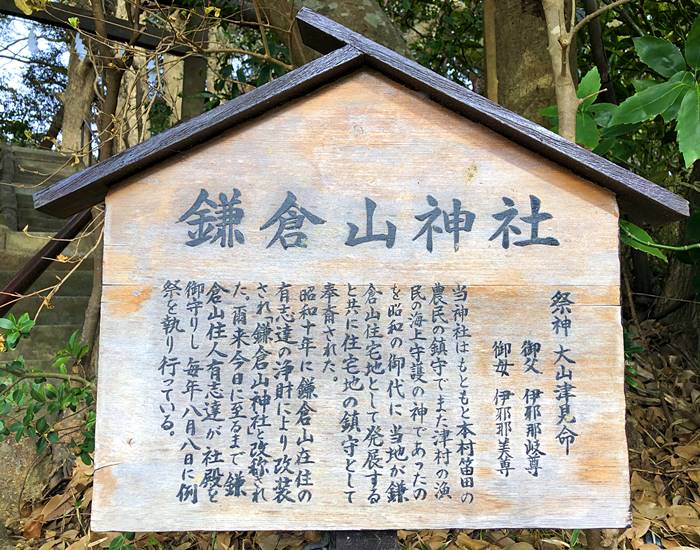 鎌倉山神社
祭神 大山津見命
御父 伊邪那岐尊
御母 伊邪那美尊
当神社はもともと本村笛田の
農民の鎮守でまた津村の漁
民の海上守護の神であったの
を昭和の御代に当地が鎌
倉山住宅地として発展する
と共に住宅地の鎮守として
奉斎された。
昭和十年に鎌倉山在住の
有志達の浄財により改装
され鎌倉山神社と改称され
た。爾来今日に至るまで鎌
倉山住人有志達が社殿を
御守りし毎年八月八日に例
祭を執り行っている。